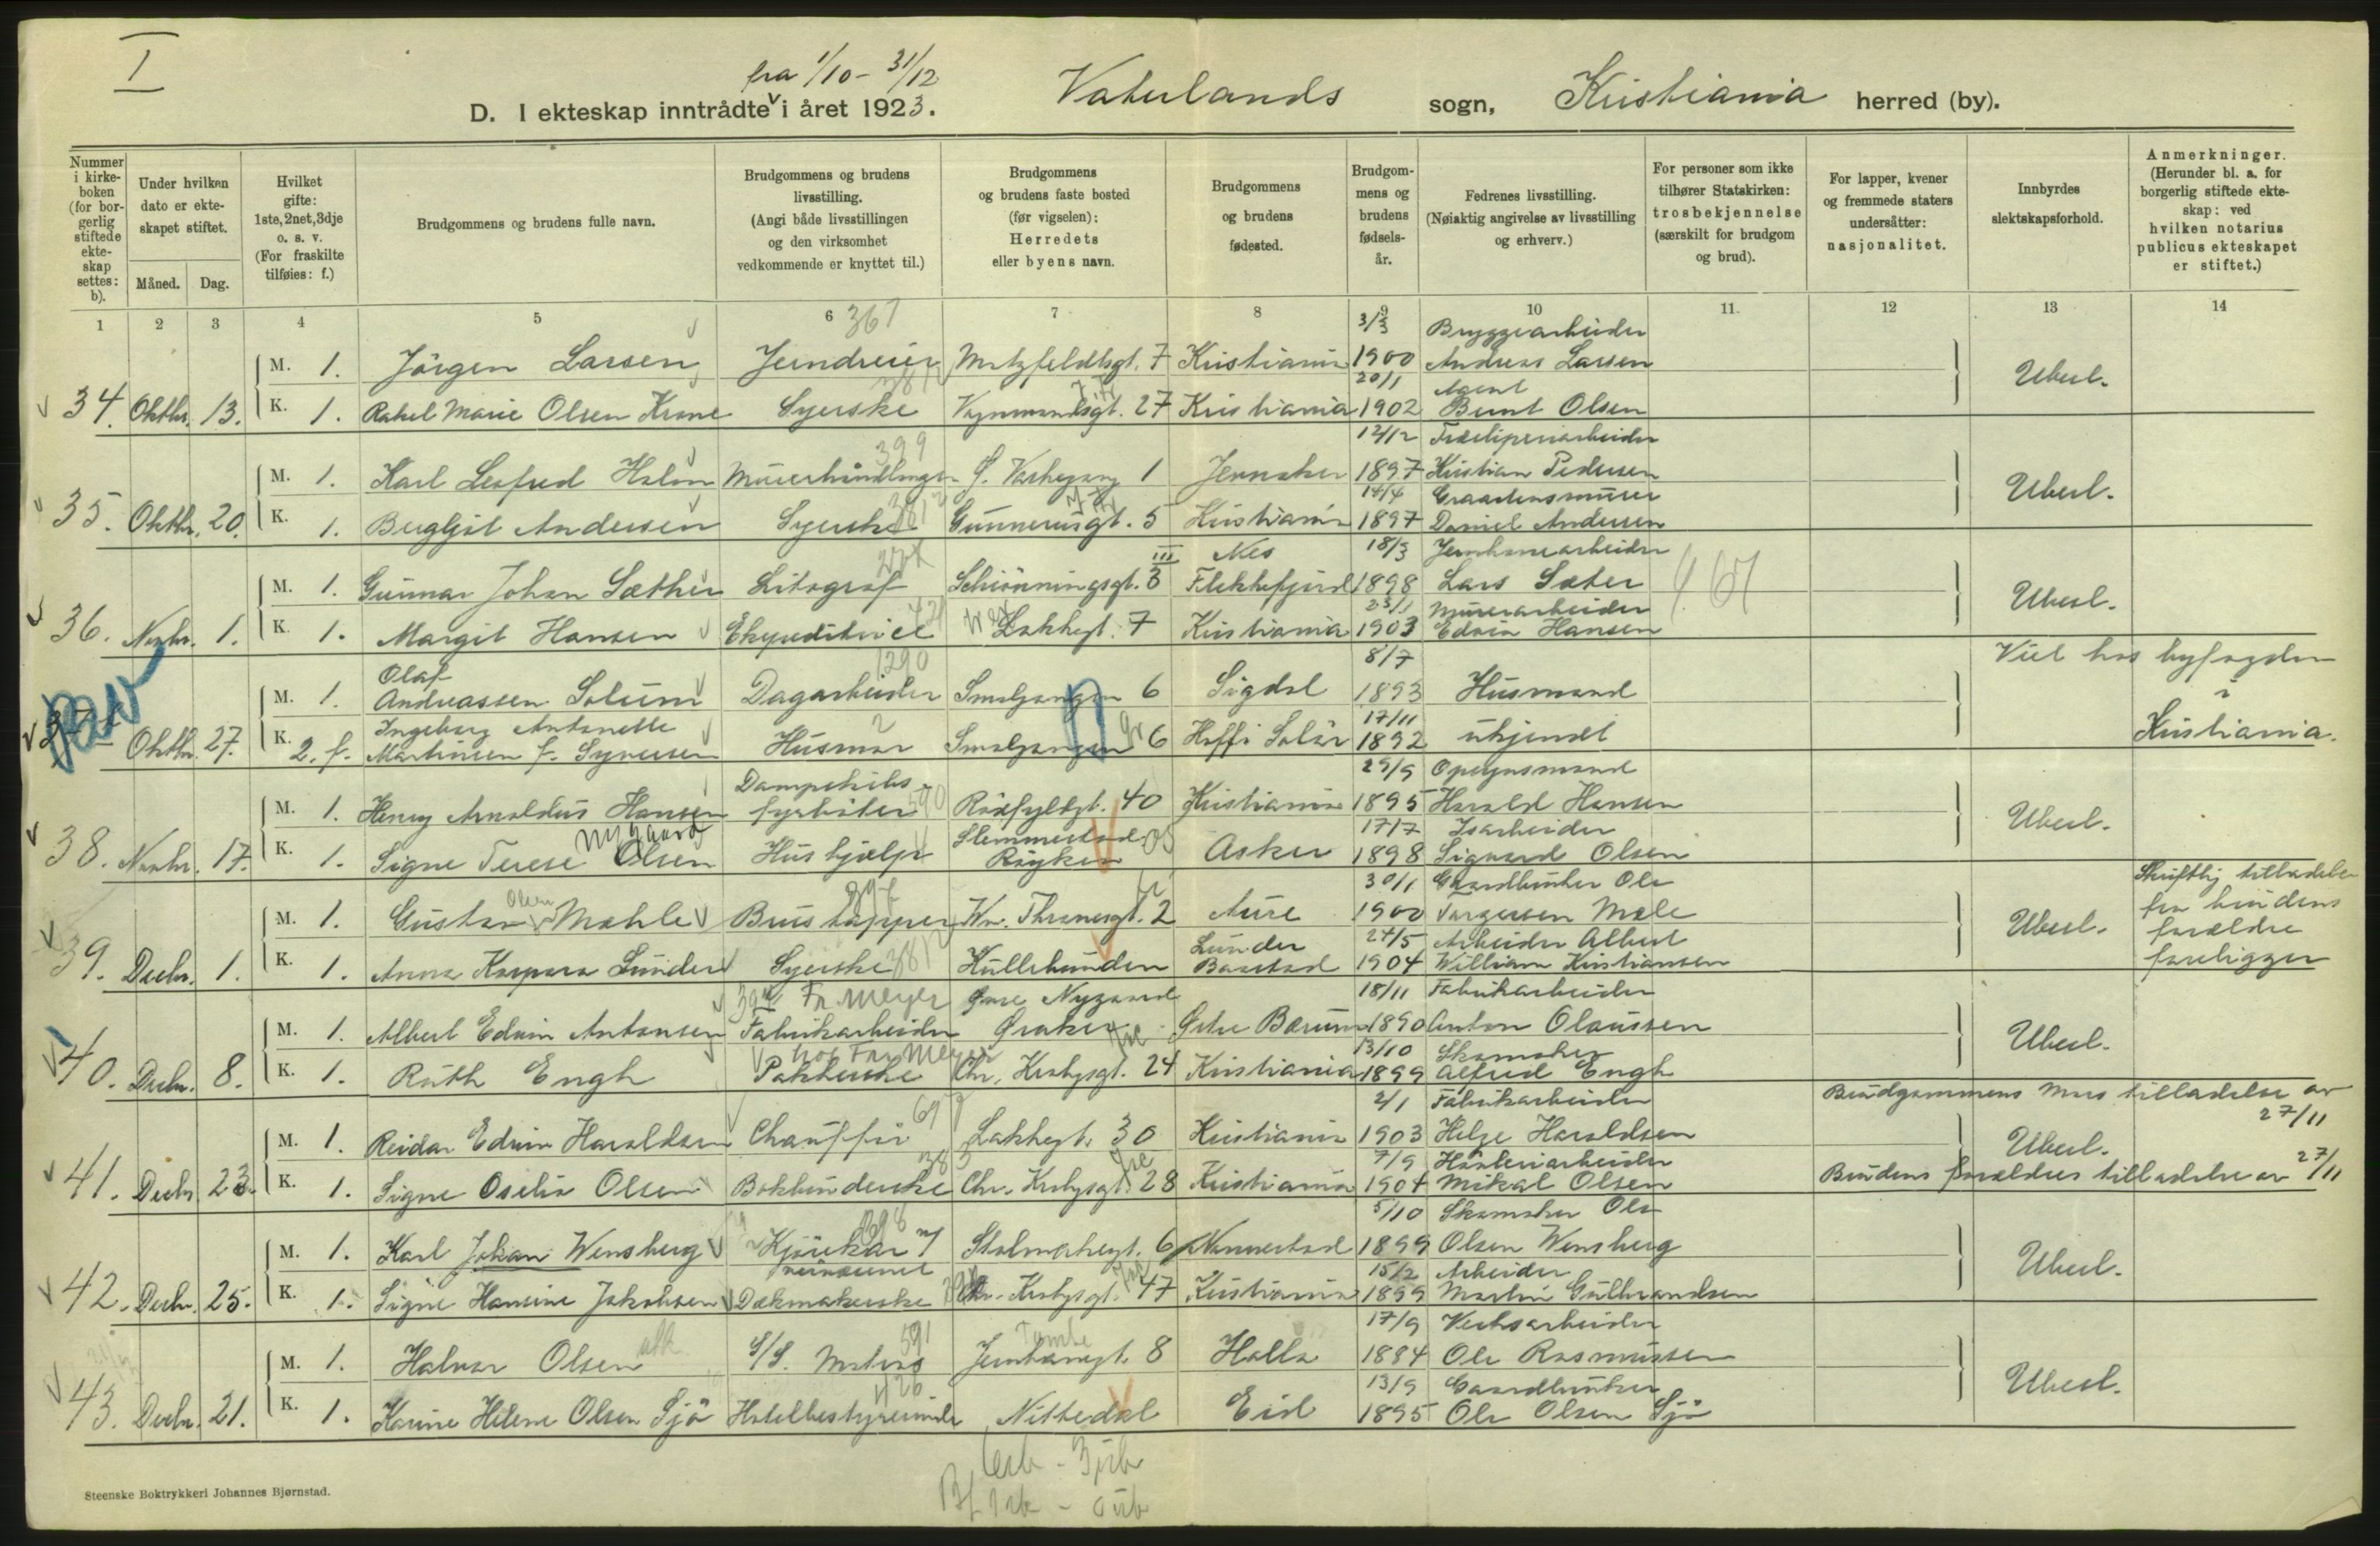 I
fra 1/10 - 31/12
D. I ekteskap inntrådte i året 1923. Vaterlands sogn, Kristiania herred (by).
Nummer i kirkeboken (for borgerlig stiftede ekteskap settes: b).
Under hvilken dato er ekteskapet stiftet.
Måned. Dag.
Hvilket gifte: 1ste, 2net, 3dje o. s. v. (For fraskilte tilføies: f.)
Brudgommens og brudens fulle navn.
Brudgommens og brudens livsstilling. (Angi både livsstillingen og den virksomhet vedkommende er knyttet til.)
Brudgommens og brudens faste bosted (før vigselen): Herredets eller byens navn.
Brudgommens og brudens fødested.
Brudgommens og brudens fødselsår.
Fedrenes livsstilling. (Nøiaktig angivelse av livsstilling og erhverv.)
For personer som ikke tilhører Statskirken: trosbekjennelse (særskilt for brudgom og brud).
For lapper, kvener og fremmede staters undersåtter: nasjonalitet.
Innbyrdes slektskapsforhold.
Anmerkninger. (Herunder bl. a. for borgerlig stiftede ekteskap: ved hvilken notarius publicus ekteskapet er stiftet.)
1 2 3 4 5 6 7 8 9 10 11. 12 13 14
367
3/3 Bryggearbeider
M. 1. Jörgen Larsen Jerndreier Motzfeldtsgt. 7 Kristiania 1900 Andreas Larsen
20/1 Agent Ubesl.
34. Oktbr. 13. K. 1. Rakel Marie Olsen Krone Syerske 27 Kristiania 1902 Bernt Olsen
399 12/12
M. 1. Karl Leofred Holm Murerhåndlanger 1 Jevnaker 1897 Kristian Pedersen
14/4 Ubesl.
35. Oktbr. 20. K. 1. Bergljot Andersen Syerske Gunnerusgt. 5 Kristiania 1897 Daniel Andersen
III Nes 18/3
M. 1. Gunnar Johan Sæther Litograf Schiönningsgt. 3 Flekkefjord 1898 Lars Sæter
23/1 Murerarbeider Ubesl.
36. Novbr. 1. K. 1. Margit Hansen Ekspeditrice Lakkegt. 7 Kristiania 1903 Edvin Hansen
Olaf 1290 8/7 Viet hos byfogden
M. 1. Andreassen Solum Dagarbeider Smalgangen 6 Sigdal 1893 Husmand i
Ingeborg Antonette 17/11
37 Oktbr. 27. K. 2. f. Martinsen f. Syversen Husmor Smalgangen 6 Hoff i Solör 1892 ukjendt Kristiania.
Dampskibs- 29/9 Opsynsmand
M. 1. Henry Arnoldus Hansen fyrböter 590 Rosfyldgt. 40 Kristiania 1895 Harald Hansen
Nygaard Slemmestad 17/7 Isarbeider Ubesl.
38. Novbr. 17. K. 1. Signe Terese Olsen Hushjælp Röyken Asker 1898 Sigvard Olsen
30/1 Gaardbruker Ole Skriftlig tilladelse
M. 1. Gustav Olsen Mohle Brustapper W. Thranesgt. 2 Aure 1900 Torgersen Mæle fra brudens
Lunder 24/5 Arbeider Albert Ubesl. forældre
39. Decbr. 1. K. 1. Anna Kaspara Lunder Syerske Hullebunden Baastad 1904 William Kristiansen foreligger
Fr. Meyer Øvre Nygaard 18/11 Fabrikarbeider
M. 1. Albert Edvin Antonsen Fabrikarbeider Graker Østre Bærum 1890 Anton Olaussen
hos Fr. Meyer 13/10 Skomaker Ubesl.
40. Decbr. 8. K. 1. Ruth Engh Pakkerske Chr. Krohgsgt. 24 Kristiania 1899 Alfred Engh
2/1 Fabrikarbeider Brudgommens mors tilladelse av 27/11
M. 1. Reidar Edvin Haraldsen Chauffør Lakkegt. 30 Kristiania 1903 Helge Haraldsen
7/9 Ubesl.
41. Decbr. 23. K. 1. Signe Oselia Olsen Bokbinderske Chr. Krohgsgt. 28 Kristiania 1904 Mikal Olsen Brudens forældres tilladelse av 27/11
5/10 Skomaker Ole
M. 1. Karl Johan Wensberg Kjörekar Stolmakergt. 6 Nannestad 1899 Olsen Wensberg
15/2 Arbeider Ubesl.
42. Decbr. 25. K. 1. Signe Hansine Jakobsen Chr. Krohgsgt. 47 Kristiania 1899 Martin Gulbrandsen
591 Tomte 17/9 Verksarbeider
M. 1. Halvar Olsen S/S. Matros Jernbanegt. 8 Holla 1884 Ole Rasmussen
13/9 Gaardbruker Ubesl.
43. Decbr. 21. K. 1. Karine Helene Olsen Sjö Hotelbestyrerinde Nittedal Eid 1895 Ole Olsen Sjö
Steenske Boktrykkeri Johannes Bjørnstad.